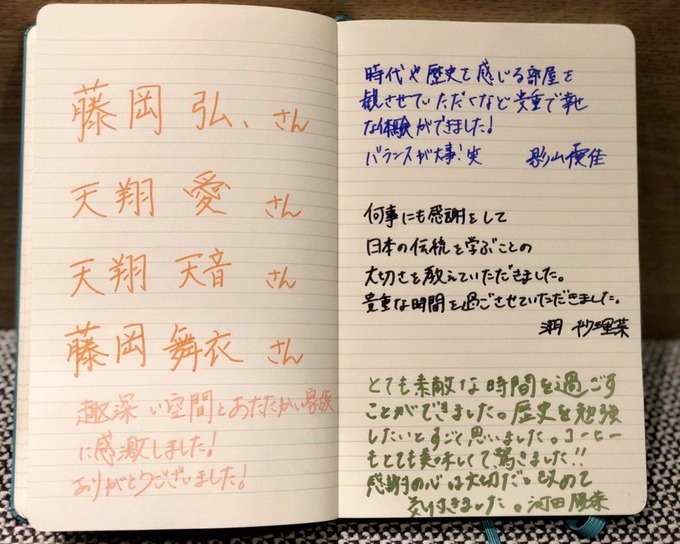 藤岡 弘、さん
天翔 愛 さん
天翔 天音 さん
藤岡 舞衣 さん
趣深い空間とあたたかい家族
に感激しました!
ありがとうございました!
時代や歴史を感じる部屋を
観させていただくなど貴重で幸せ
な体験ができました!
バランスが大事!笑 影山優佳
何事にも感謝をして
日本の伝統を学ぶことの
大切さを教えていただきました。
貴重な時間を過ごさせていただきました。
潮 紗理菜
とても素敵な時間を過ごす
ことができました。歴史を勉強
したいとすごく思いました。コーヒー
もとても美味しくて驚きました!!
感謝の心は大切だ。改めて
気付きました。河田陽菜